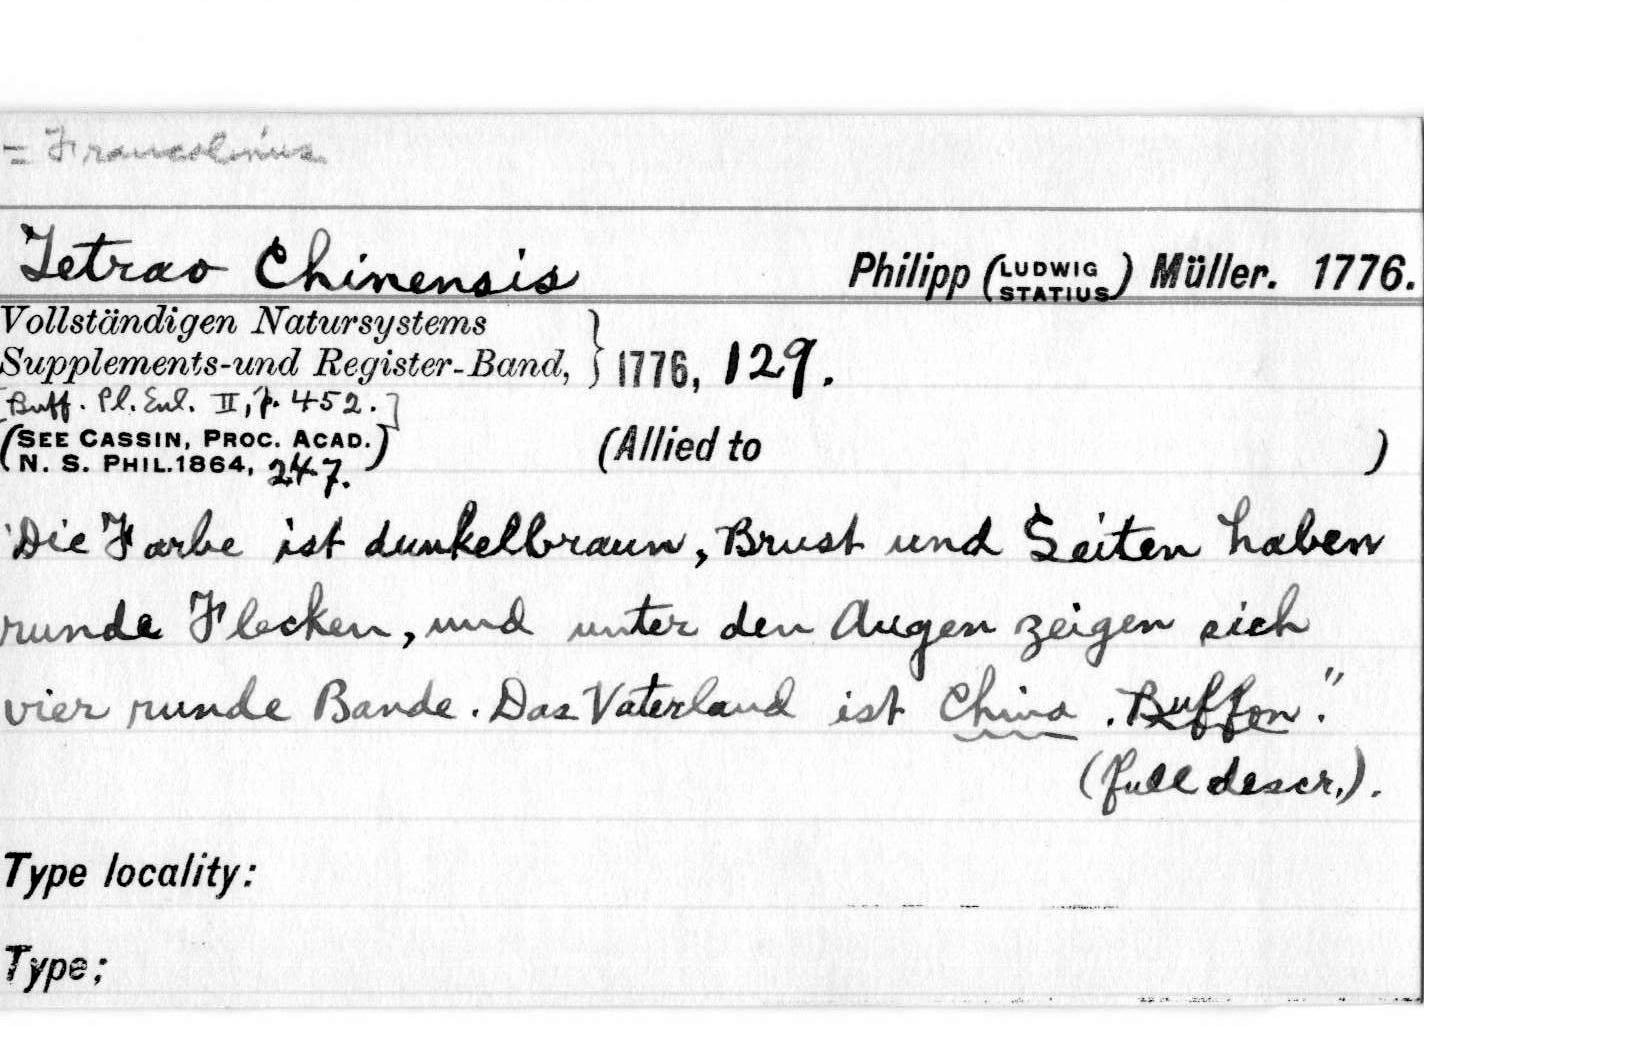 = Francolinus
Tetrao Chinensis Philipp (LUDWIG STATIUS) Müller. 1776.
Vollständigen Natursystems
Supplements-und Register-Band, } 1776, 129.
[Buff. Pl. Enl. II, p. 452.]
(SEE CASSIN, PROC. ACAD.
N. S. PHIL.1864, 247.) (Allied to )
"Die Farbe ist dunkelbraun, Brust und Seiten haben
runde Flecken, und unter den Augen zeigen sich
vier runde Bande. Das Vaterland ist China. Buffon."
(full descr.).
Type locality:
Type: